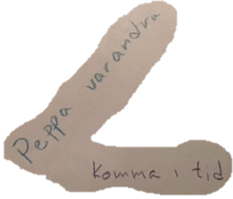 Peppa varandra
Komma i tid